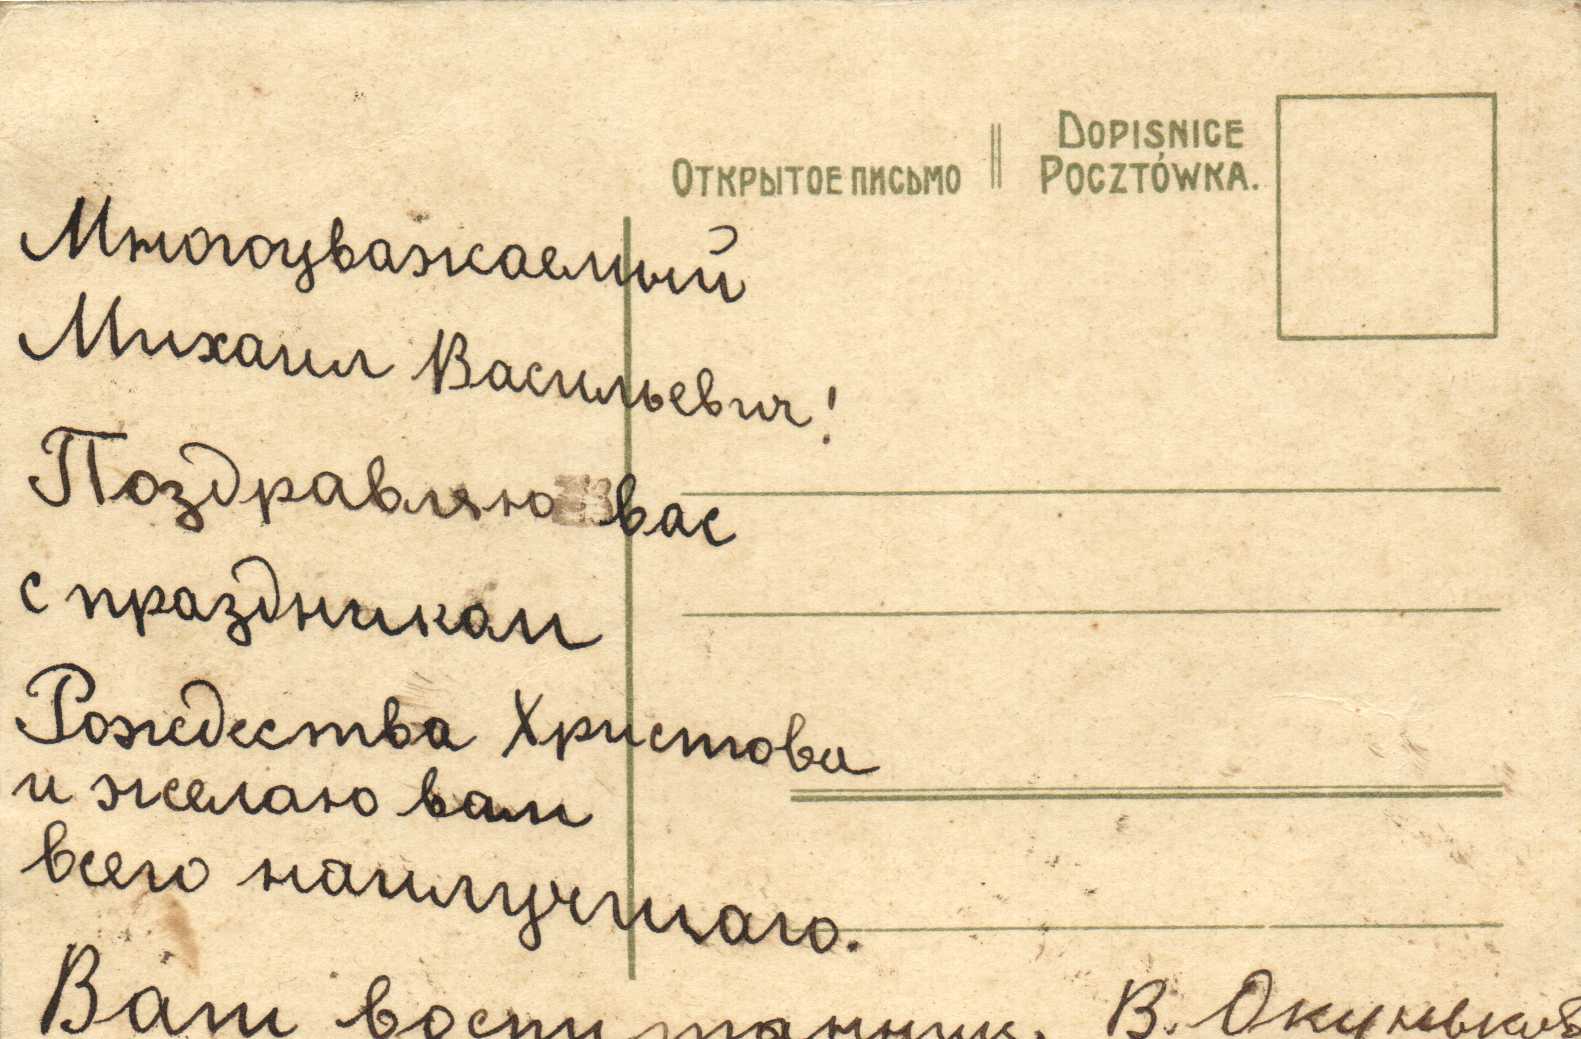 Открытое письмо
Dopisnice
Pocztówka.
Многоуважаемый
Михаил Васильевич!
Поздравляю вас
с праздникам
Рождества Христова
и желаю вам
всего наилучшаго.
Ваш воспитанник. В. Окуньков